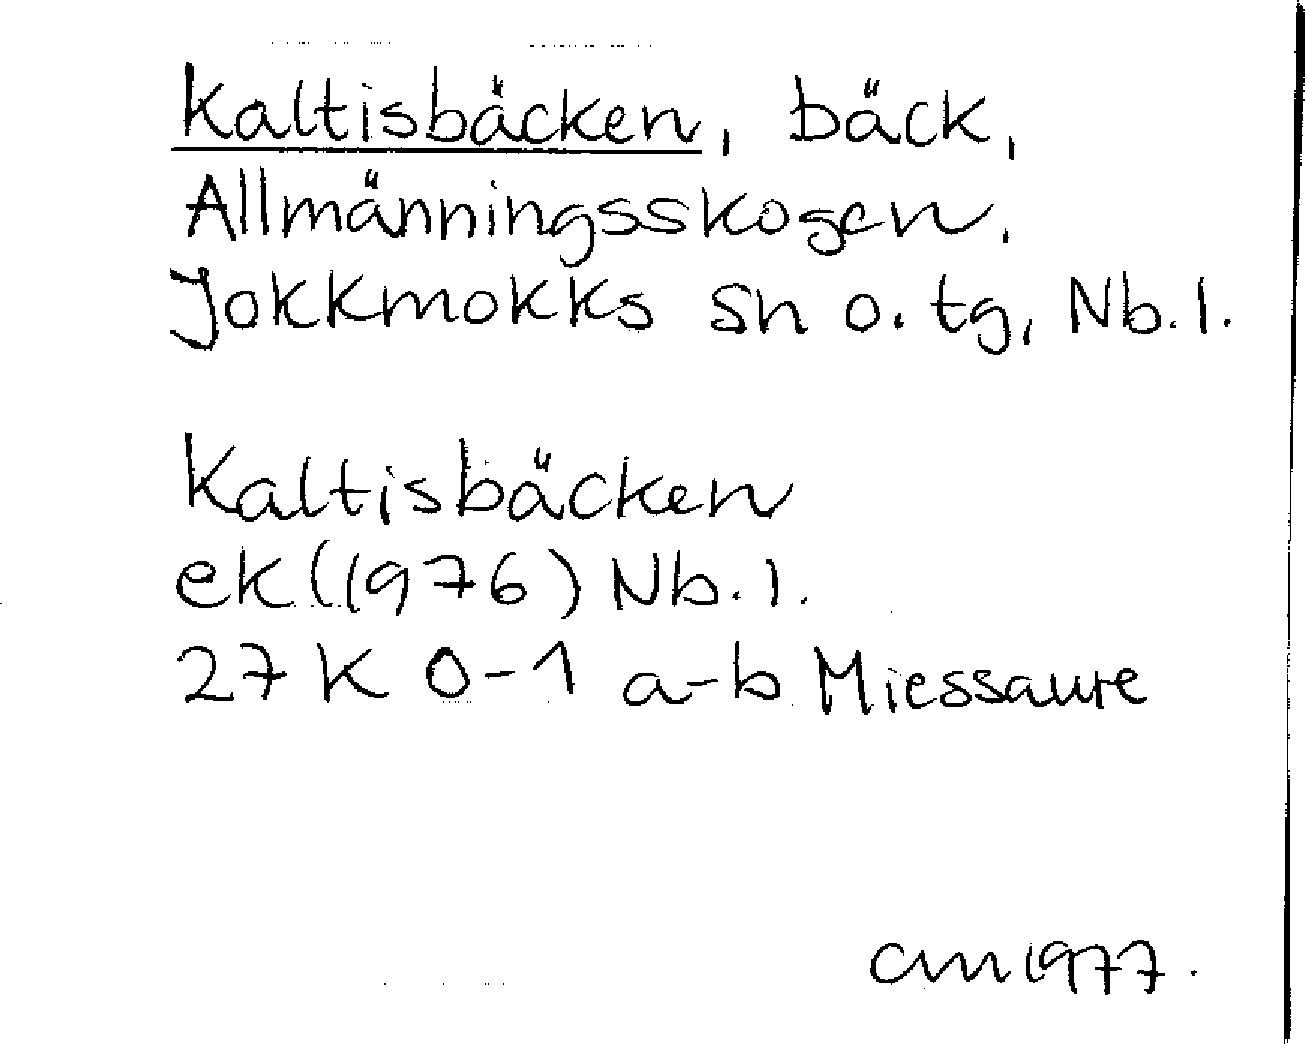 Kaltisbäcken, bäck,
Allmänningsskogen,
Jokkmokks sn o. tg, Nb. l.
Kaltisbäcken
ek (1976) Nb. l.
27 K 0-1 a-b Miessaure
CM 1977.